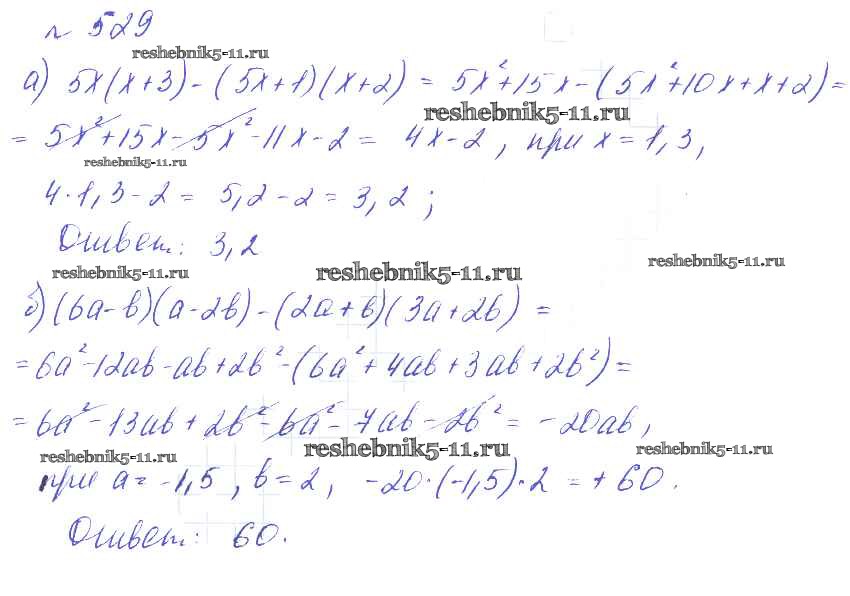 № 529
reshebnik5-11.ru
а) 5x(x+3) - (5x+1)(x+2) = 5x²+15x-(5x²+10x+x+2)=
reshebnik5-11.ru
= 5x²+15x-5x²-11x-2 = 4x-2, при x=1,3,
reshebnik5-11.ru
4·1,3-2 = 5,2-2 = 3,2;
Ответ: 3,2
reshebnik5-11.ru
reshebnik5-11.ru reshebnik5-11.ru
б) (6a-b)(a-2b)-(2a+b)(3a+2b) =
=6a²-12ab-ab+2b²-(6a²+4ab+3ab+2b²)=
=6a²-13ab+2b²-6a²-7ab-2b²=-20ab,
reshebnik5-11.ru reshebnik5-11.ru reshebnik5-11.ru
при a=-1,5, b=2, -20·(-1,5)·2 =+60.
Ответ: 60.